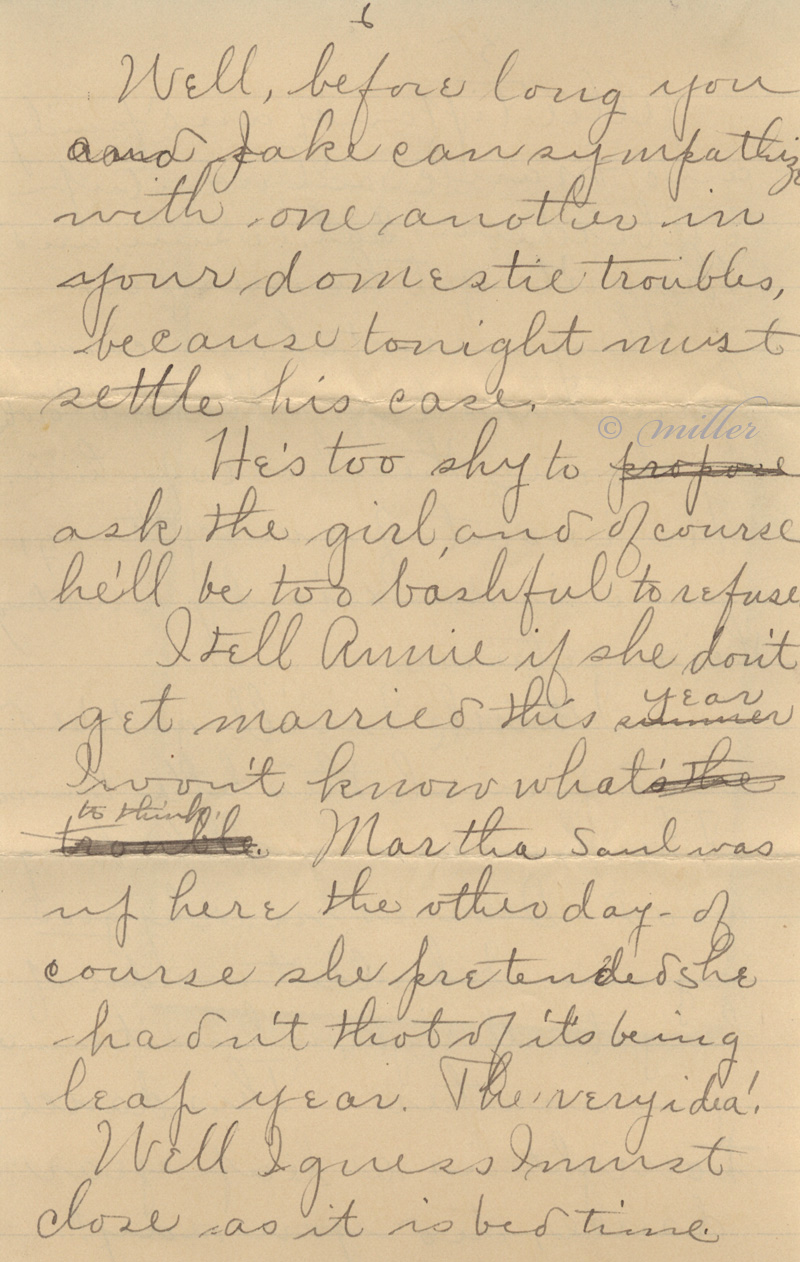 6
Well, before long you
and Jake can sympathize
with one another in
your domestic troubles,
because tonight must
settle his case.
© miller
He's too shy to propose
ask the girl, and of course
he'll be too bashful to refuse
I tell Annie if she don't
year
get married this summer
I won't know what's the
to think.
trouble. Martha Saul was
up here the other day - of
course she pretended she
hadn't thot of it's being
leap year. The very idea!
Well I guess I must
close as it is bed time.